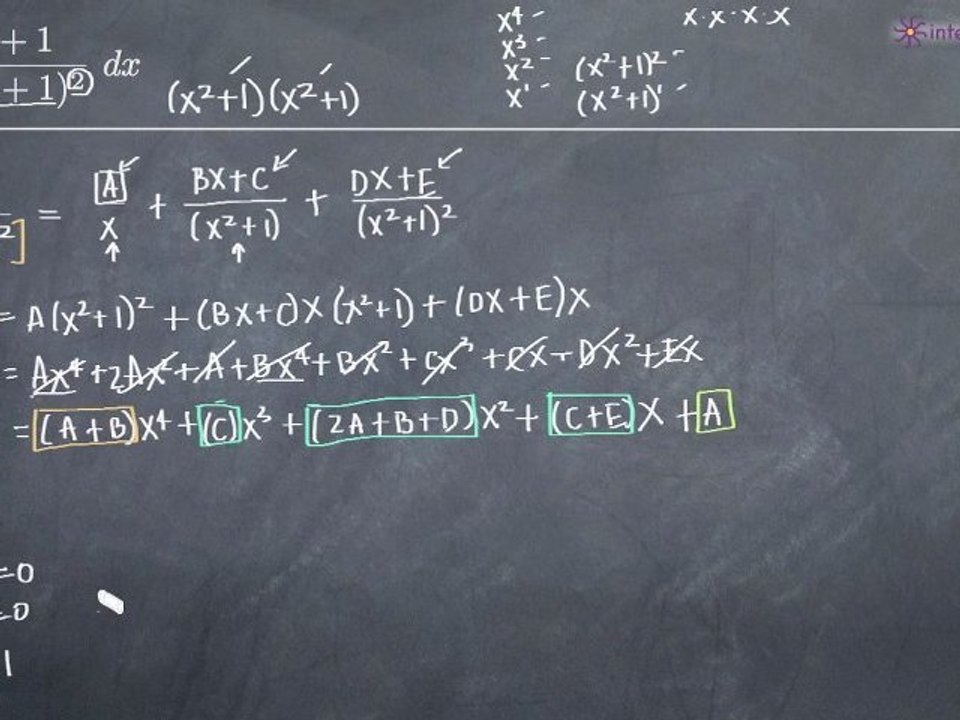 + 1
+ 1)² dx
(x²+1)(x²+1)
x⁴ -
x³ -
x² -
x¹ -
(x²+1)² -
(x²+1)¹ -
x·x·x·x
inte
²] = A/x + (Bx+C)/(x²+1) + (Dx+E)/(x²+1)²
= A(x²+1)² + (Bx+C)x(x²+1) + (Dx+E)x
= Ax⁴+2Ax²+A+Bx⁴+Bx²+Cx³+Cx-Dx²+Ex
= (A+B)x⁴+(C)x³+(2A+B+D)x²+(C+E)x+A
=0
=0
1